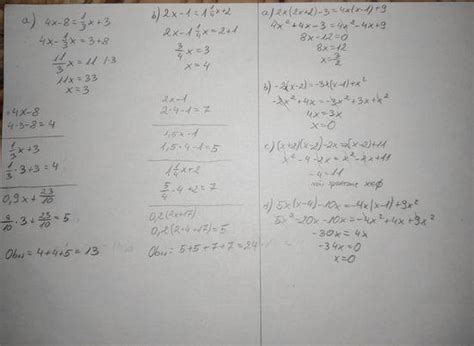 a) 4x-8=1/3x+3
4x-1/3x=3+8
11/3x=11 |·3
11x=33
x=3
=4x-8
4·3-8=4
1/3x+3
1/3·3+3=4
0,9x+23/10
9/10·3+23/10=5
Общ=4+4+5=13
b) 2x-1=1 1/4x+2
2x-1 1/4x=2+1
3/4x=3
x=4
2x-1
2·4-1=7
1,5x-1
1,5·4-1=5
1 1/4x+2
5/4·4+2=7
0,2(2x+17)
0,2(2·4+17)=5
Обш: 5+5+7+7=24
a) 2x(2x+2)-3=4x(x-1)+9
4x²+4x-3=4x²-4x+9
8x-12=0
8x=12
x=3/2
b) -2x(x-2)=-3x(x-1)+x²
-2x²+4x=-3x²+3x+x²
4x=3x
x=0
c) (x+2)(x-2)-2x=x(x-2)+11
x²-4-2x=x²-2x+11
-4=11
d) 5x(x-4)-10x=-4x(x-1)+9x²
5x²-20x-10x=-4x²+4x+9x²
-30x=4x
-34x=0
x=0